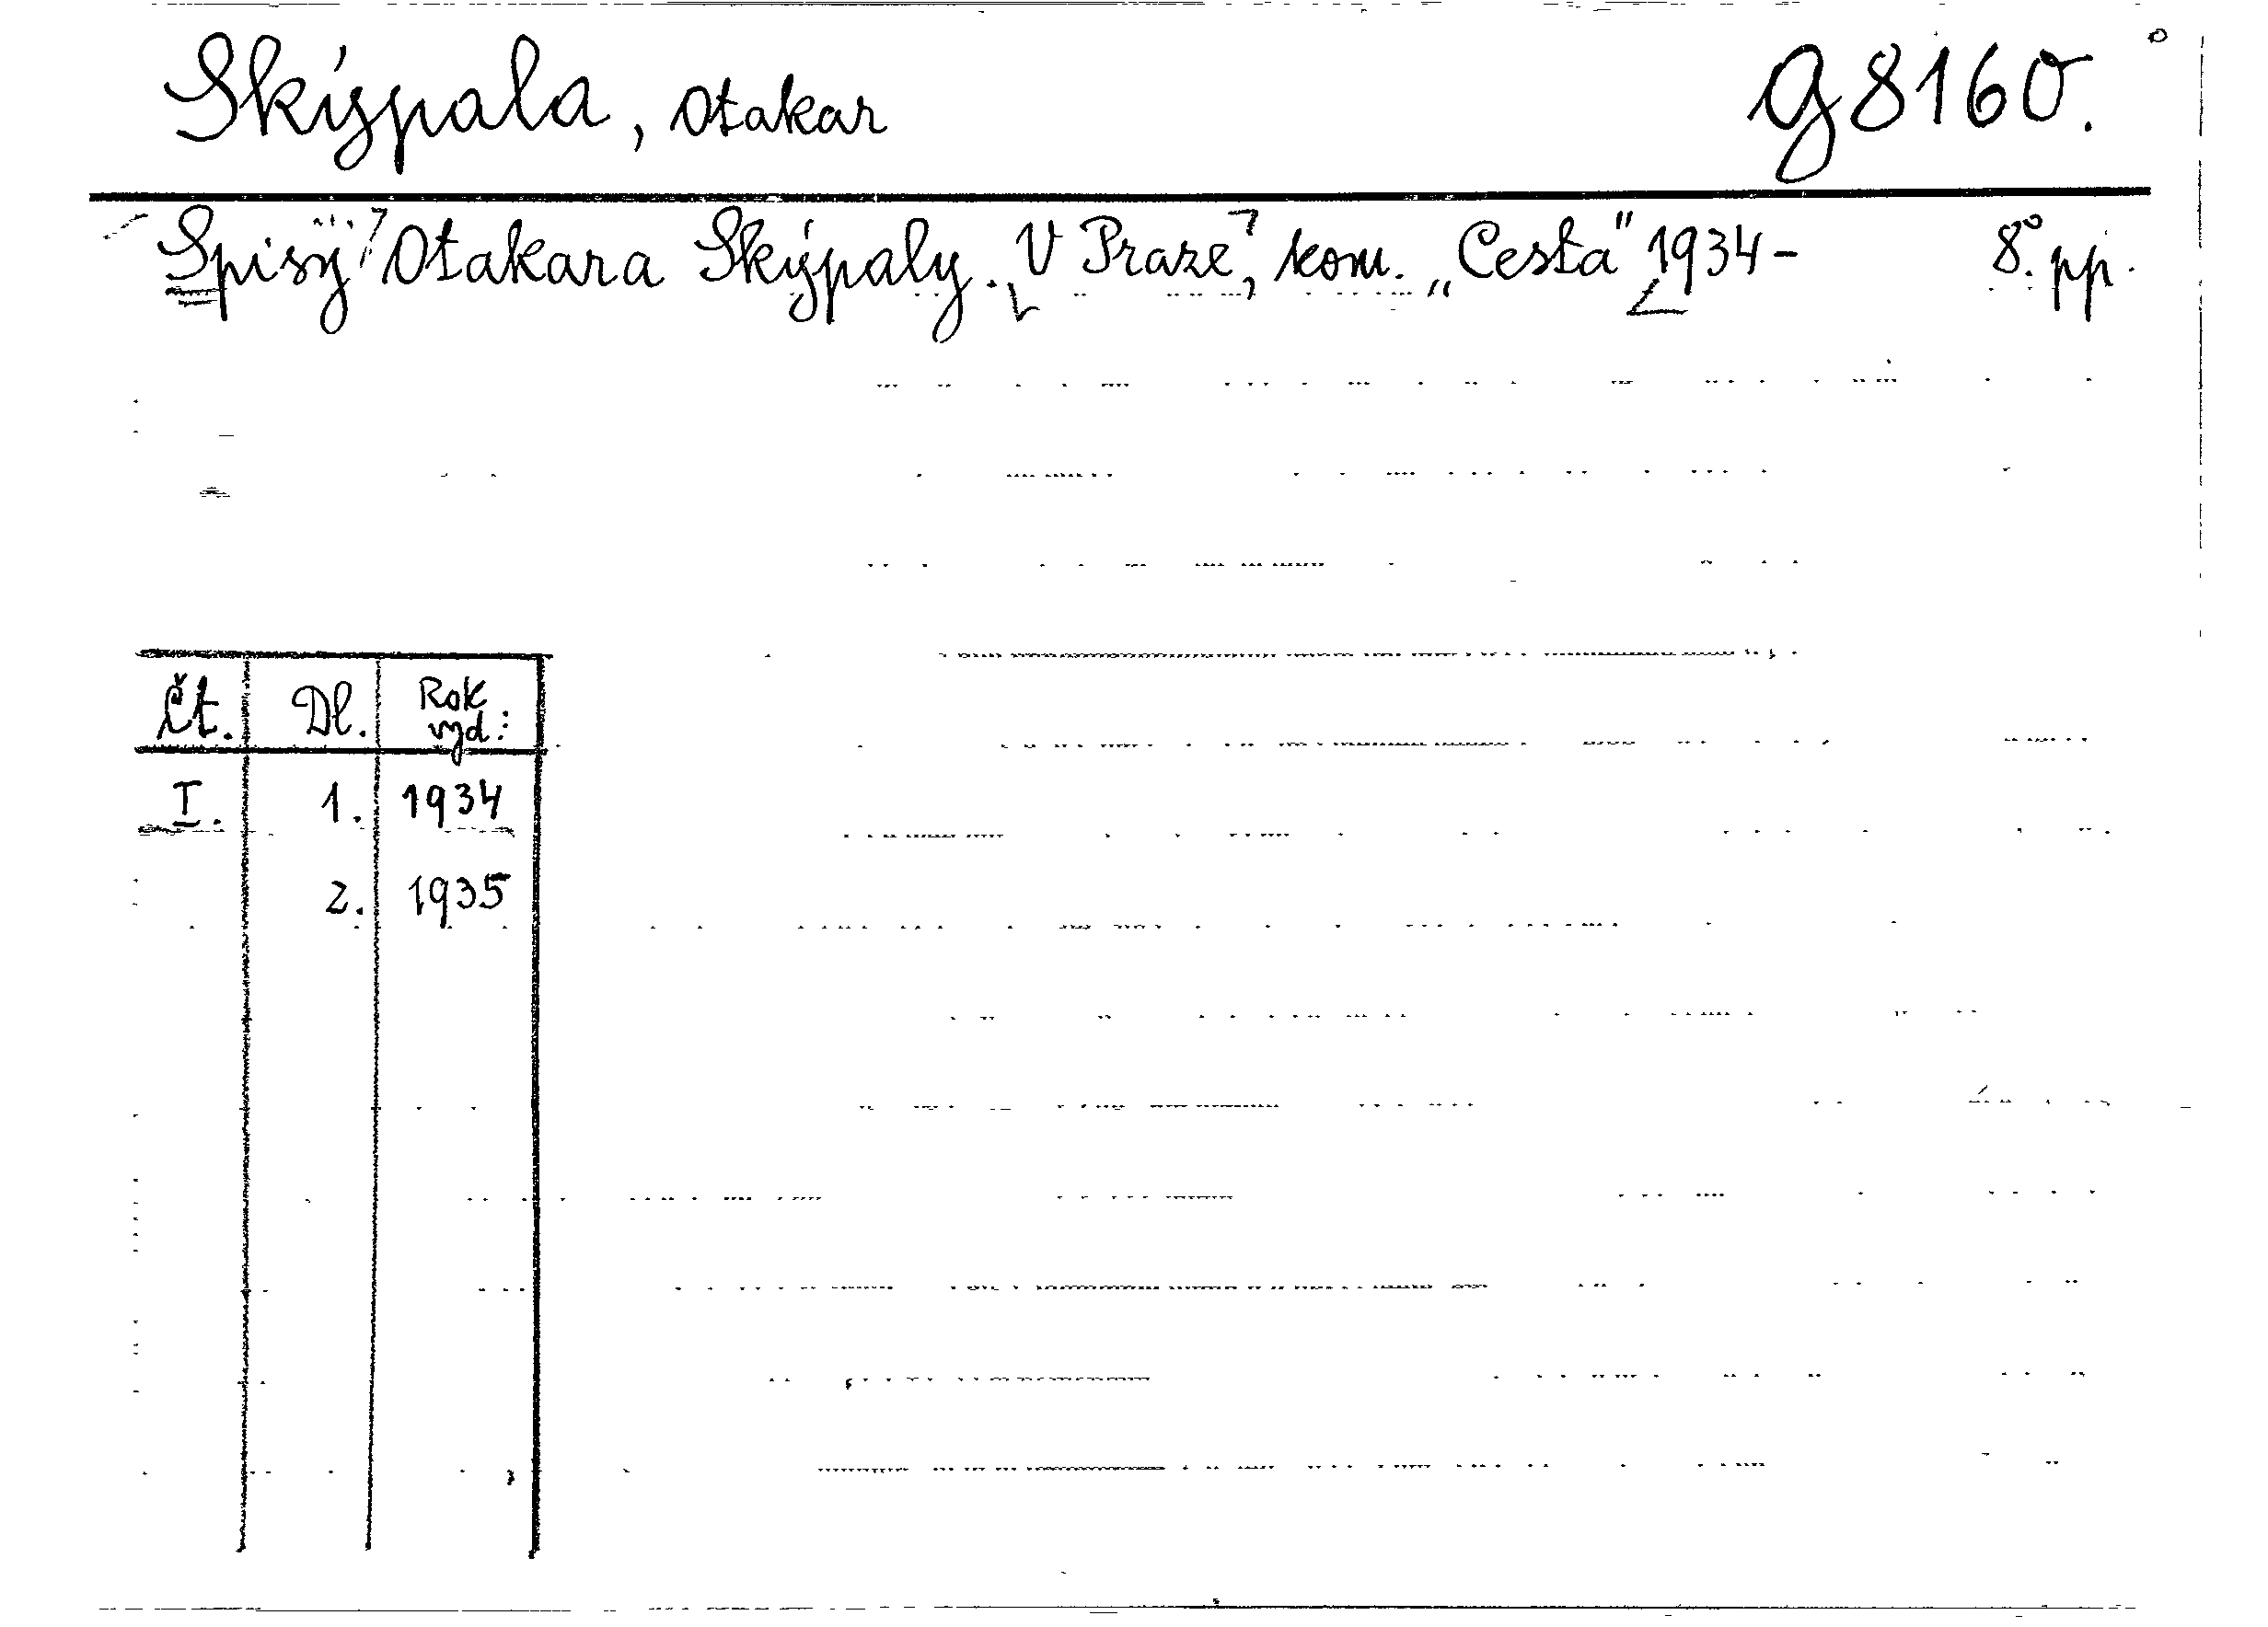 Skýpala, Otakar g 8160.
Spisy Otakara Skýpaly. V Praze, kom. „Cesta" 1934- 8°. pp.
Čt. Dl. Rok vyd:
I. 1. 1934
2. 1935